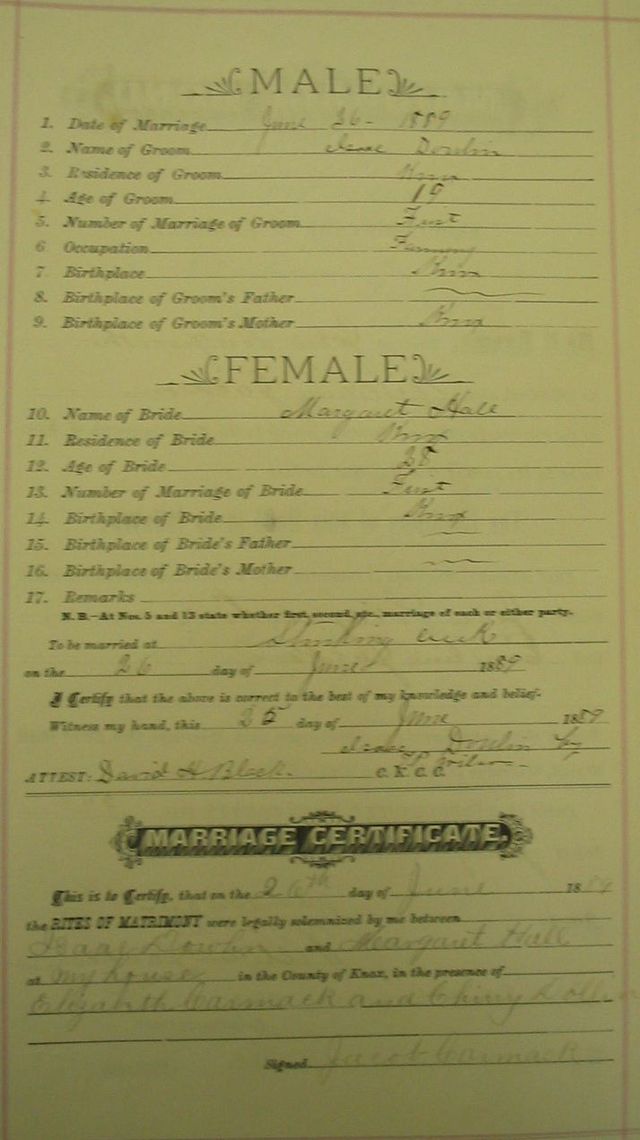 MALE
1. Date of Marriage June 26 - 1889
2. Name of Groom Isaac Dowlin
3. Residence of Groom Knox
4. Age of Groom 19
5. Number of Marriage of Groom First
6 Occupation Farming
7 Birthplace Knox
8. Birthplace of Groom's Father
9. Birthplace of Groom's Mother Knox
FEMALE
10. Name of Bride Margaret Hall
11. Residence of Bride Knox
12. Age of Bride 28
13. Number of Marriage of Bride First
14. Birthplace of Bride Knox
15. Birthplace of Bride's Father
16. Birthplace of Bride's Mother
17. Remarks
N. B.—At Nos. 5 and 13 state whether first, second, etc., marriage of each or either party.
To be married at Stinking creek
on the 26 day of June 1889
I Certify that the above is correct to the best of my knowledge and belief.
Witness my hand, this 25 day of June 1889
Isaac Dowlin by
ATTEST: David H Black. C. K. C. C. Wilson
MARRIAGE CERTIFICATE.
This is to Certify, that on the 26th day of June 1889
the RITES OF MATRIMONY were legally solemnized by me between
Isaac Dowlin and Margaret Hall
at my house in the County of Knox, in the presence of
Elizabeth Carmack and
Signed Jacob Carmack